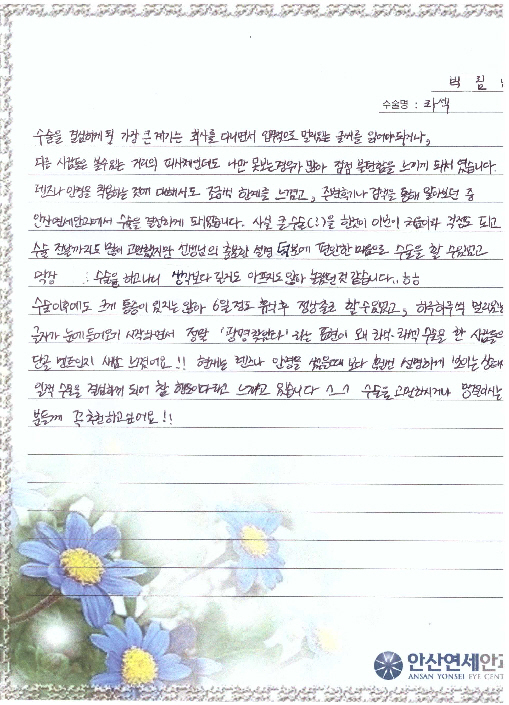 박 림
수술명 : 라섹
수술을 결심하게 된 가장 큰 계기는 회사를 다니면서 업무적으로 멀리있는 글씨를 읽어야 되거나,
다른 사람들은 볼수있는 거리의 피사체인데도 나만 못보는경우가 많아 점점 불편함을 느끼게 되서 였습니다.
렌즈나 안경을 착용하는 것에 대해서도 조금씩 한계를 느꼈고, 주변후기나 검색을 통해 알아보던 중
안산연세안과에서 수술을 결정하게 되었습니다. 사실 큰수술(?)을 한것이 이번이 처음이라 걱정도 되고
수술 전날까지도 많이 고민했지만 선생님의 충분한 설명 덕분에 편안한 마음으로 수술을 할 수있었고
막상 수술을 하고나니 생각보다 길거도 아프지도 않아 놀랐던것 같습니다. ㅎㅎ
수술이후에도 크게 통증이 있지는 않아 6일정도 휴식후 정상출근 할 수있었고, 하루하루씩 멀리있는
글자가 눈에 들어오기 시작하면서 정말 '광명찾았다' 라는 표현이 왜 라식·라섹 수술을 한 사람들의
단골 멘트인지 새삼 느꼈어요!! 현재는 렌즈나 안경을 꼈을때 보다 훨씬 선명하게 보이는 상태
일찍 수술을 결심하게 되어 참 행운이다라고 느끼고 있습니다 ^_^ 수술을 고민하시거나 망설이시는
분들께 꼭 추천하고싶어요!!
안산연세안과
ANSAN YONSEI EYE CENT